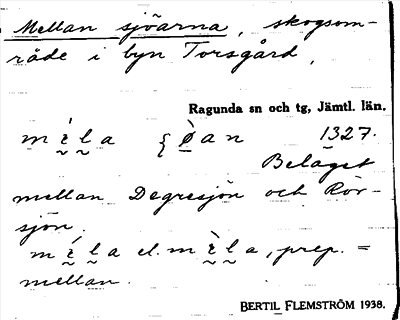 Mellan sjöarna, skogsom-
råde i byn Torsgård,
Ragunda sn och tg, Jämtl. län.
1327.
Beläget
mellan Degresjön och Rör-
sjön.
el. prep. =
mellan.
BERTIL FLEMSTRÖM 1938.